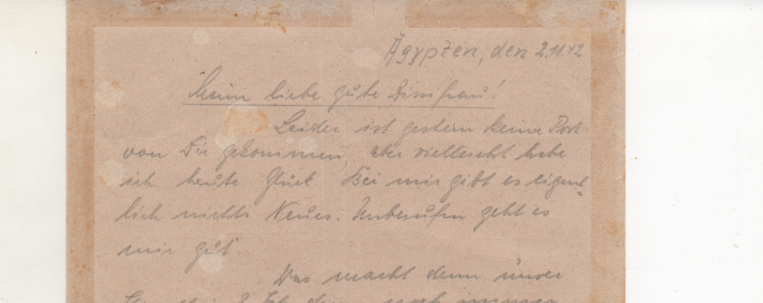 Ägypten, den 2.11.42
Meine liebe gute Dirrifrau!
Leider ist gestern keine Post
von Dir gekommen, aber vielleicht habe
ich heute Glück. Bei mir gibt es eigent-
lich nichts Neues. Unberufen geht es
mir gut.
Was macht denn unser
noch immer